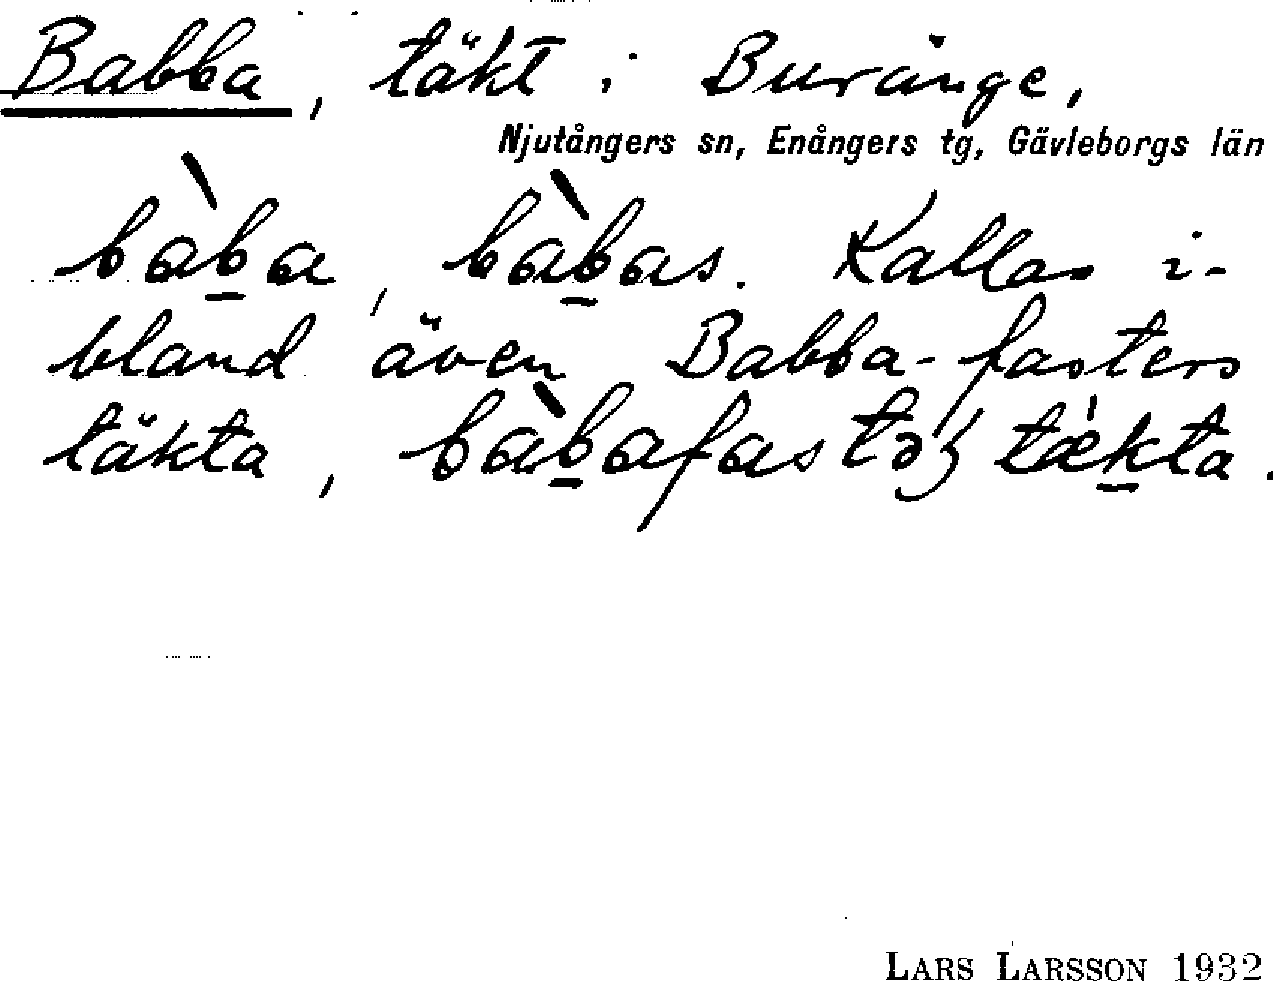 Babba, täkt i Buränge,
Njutångers sn, Enångers tg, Gävleborgs län
bàb̲a, bàb̲as. Kallas i-
bland även Babba-fasters
täkta, bàb̲afastəʒ tæ̍k̲ta.
LARS LARSSON 1932